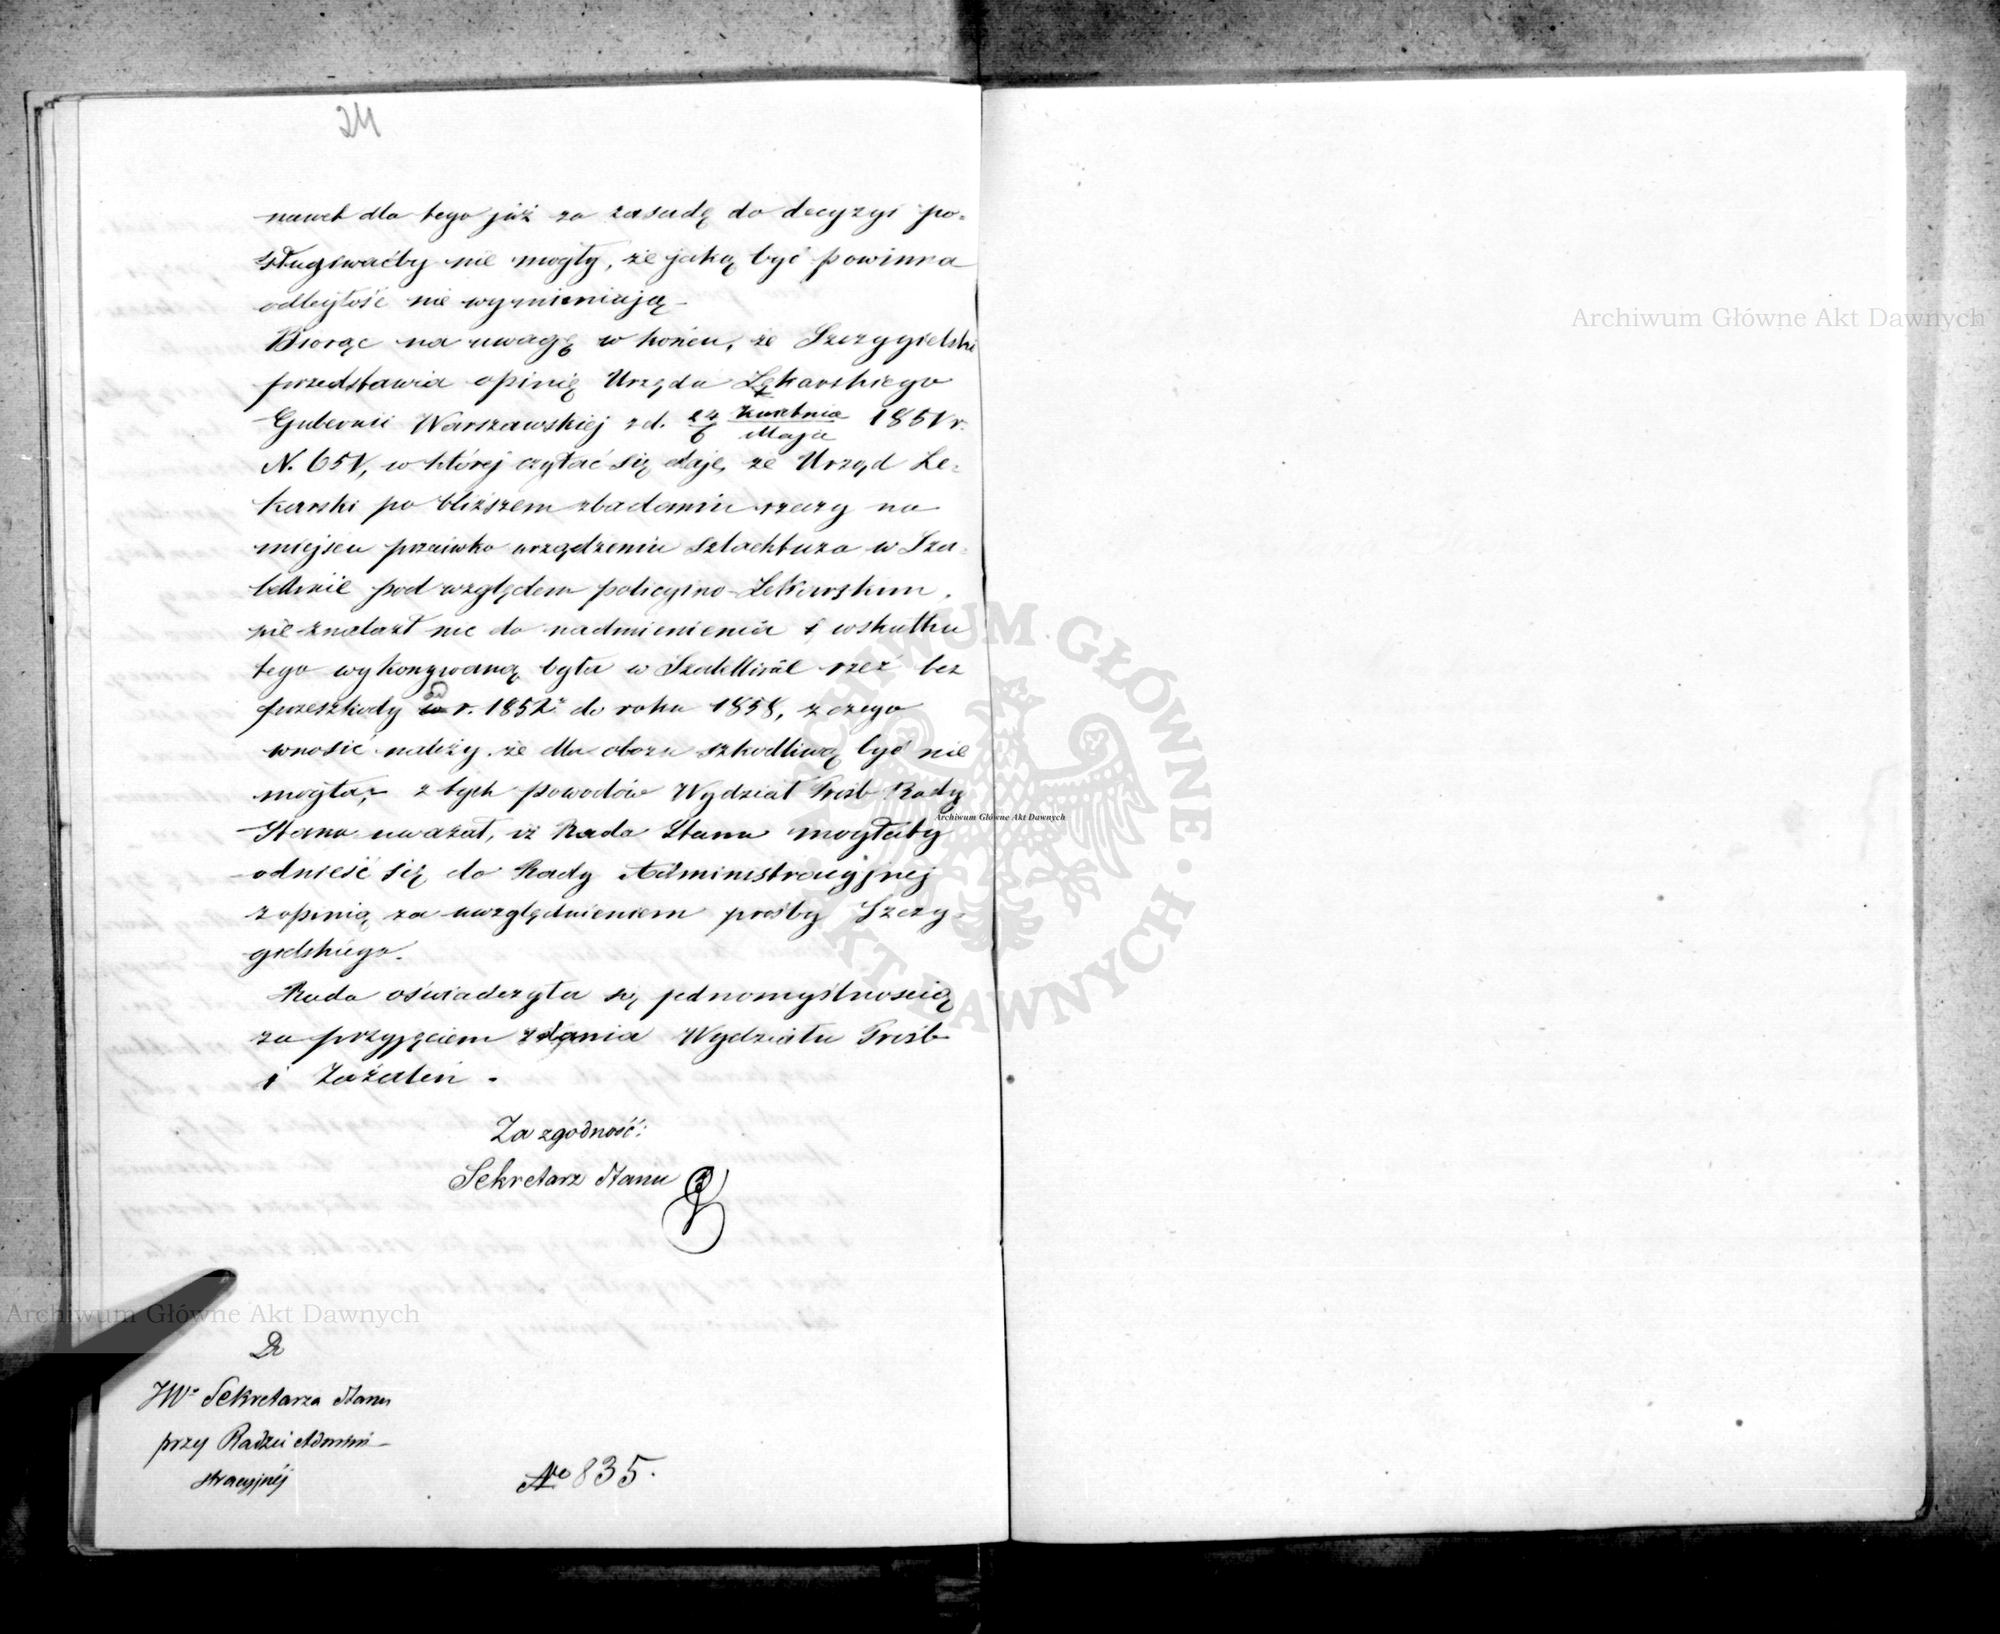 24
nawet dla tego już za zasadę do decyzyi po-
sługiwaćby nie mogły, że jaką być powinna
odległość nie wymieniają
Biorąc na uwagę w końcu, że Szczygielski
przedstawia opinię Urzędu Lekarskiego
Gubernii Warszawskiej z d. 24/6 Kwietnia/Maja 1851 r.
N. 651, w której czytać się daje, że Urząd Le-
karski po bliższem zbadaniu rzeczy na
miejscu przeciwko urządzeniu szlachtuza w Sza-
pod względem policyjno-Lekarskim,
nie znalazł nic do nadmienienia i wskutku
tego wykonywaną była w rzeź bez
przeszkody od r. 1852 do roku 1858, z czego
wnosić należy że dla obozu szkodliwą być nie
mogła; z tych powodów Wydział Próśb Rady
Stanu uważał, iż Rada Stanu mogłaby
odnieść się do Rady Administracyjnej
z opinią za uwzględnieniem prośby Szczy-
gielskiego.
Rada oświadczyła się jednomyślnością
za przyjęciem zdania Wydziału Próśb
i Zażaleń.
Za zgodność:
Sekretarz Stanu
Do
JWo Sekretarza Stanu
przy Radzie Admini-
stracyjnéj
No 835.
Archiwum Główne Akt Dawnych
Archiwum Główne Akt Dawnych
Archiwum Główne Akt Dawnych
ARCHIWUM GŁÓWNE AKT DAWNYCH